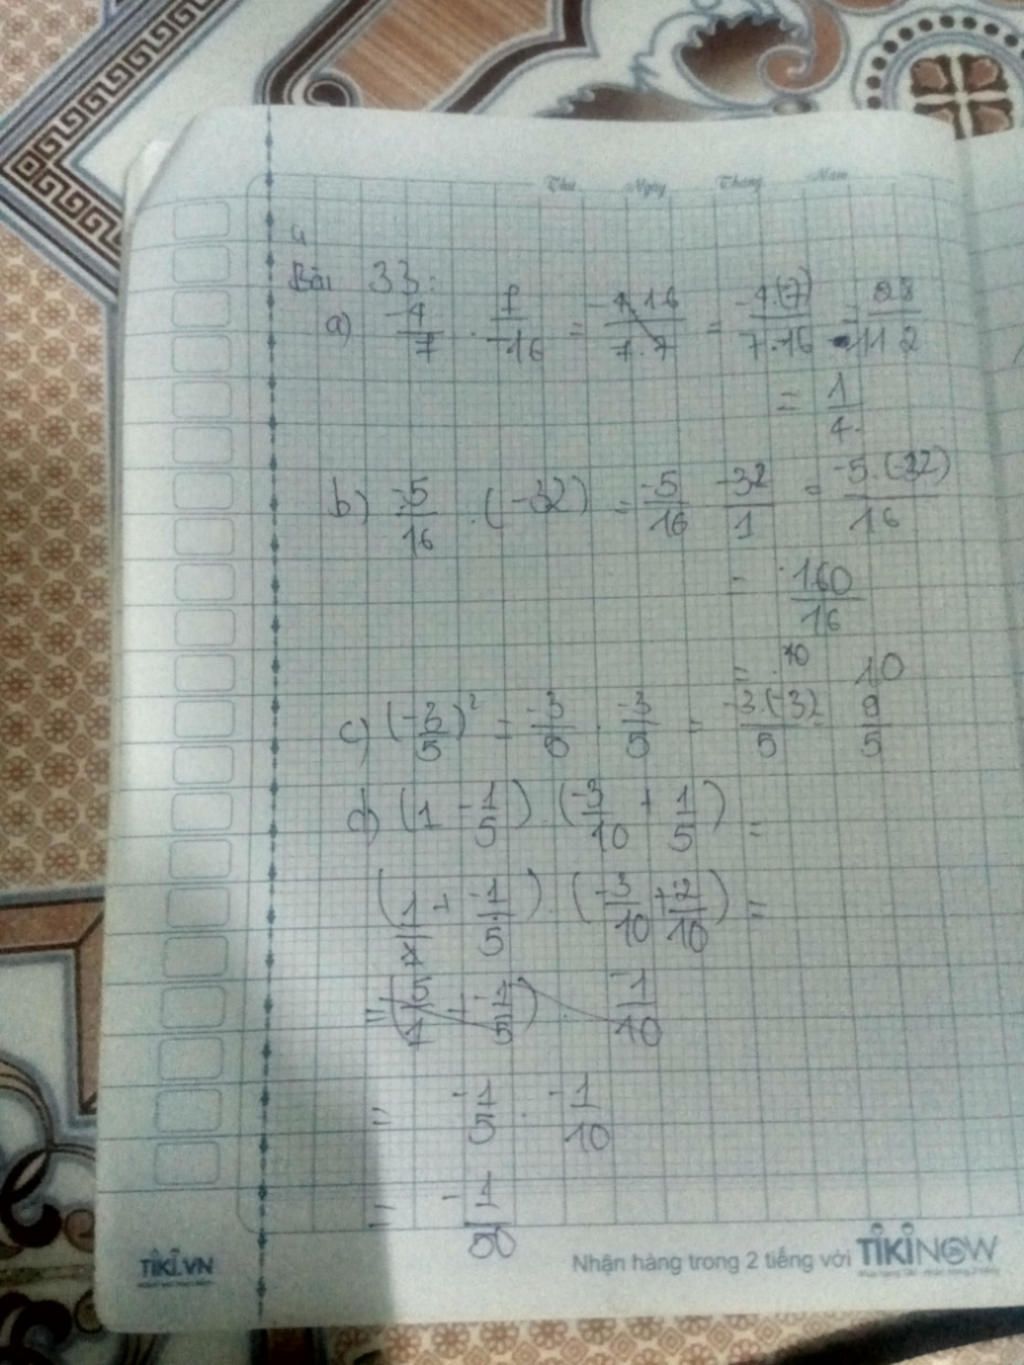 Thứ Ngày Tháng Năm
4
Bài 33:
a) -4/7 . 7/-16 = = -4.(-7)/7.16 = 28/112
= 1/4
b) -5/16 . (-32) = -5/16 -32/1 = -5.(-32)/16
= 160/16
= 10 10
c) (-3/5)² = -3/5 . -3/5 = -3.(-3)/5 = 9/5
d) (1 - 1/5) . (-3/10 + 1/5) =
(1/1 + -1/5) . (-3/10 + 2/10) =
= -1/10
= -1/5 . -1/10
= -1/50
TIKI.VN
Nhận hàng trong 2 tiếng với TIKINOW